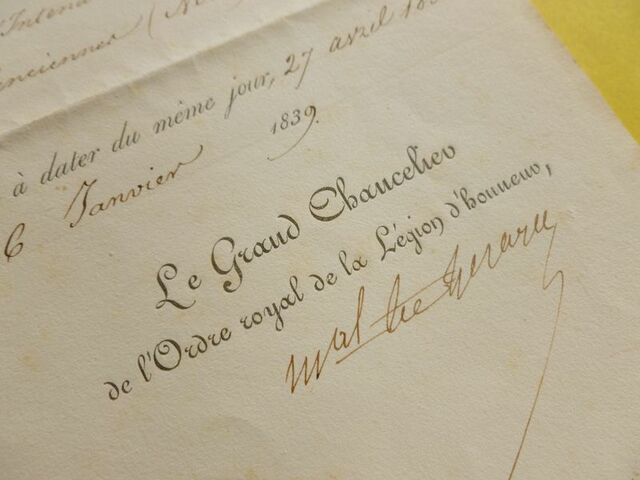 Intend
enciennes (No
à dater du même jour, 27 avril 18
6 Janvier 1839.
Le Grand Chancelier
de l'Ordre royal de la Légion d'honneur,
Mal Cte Gérard